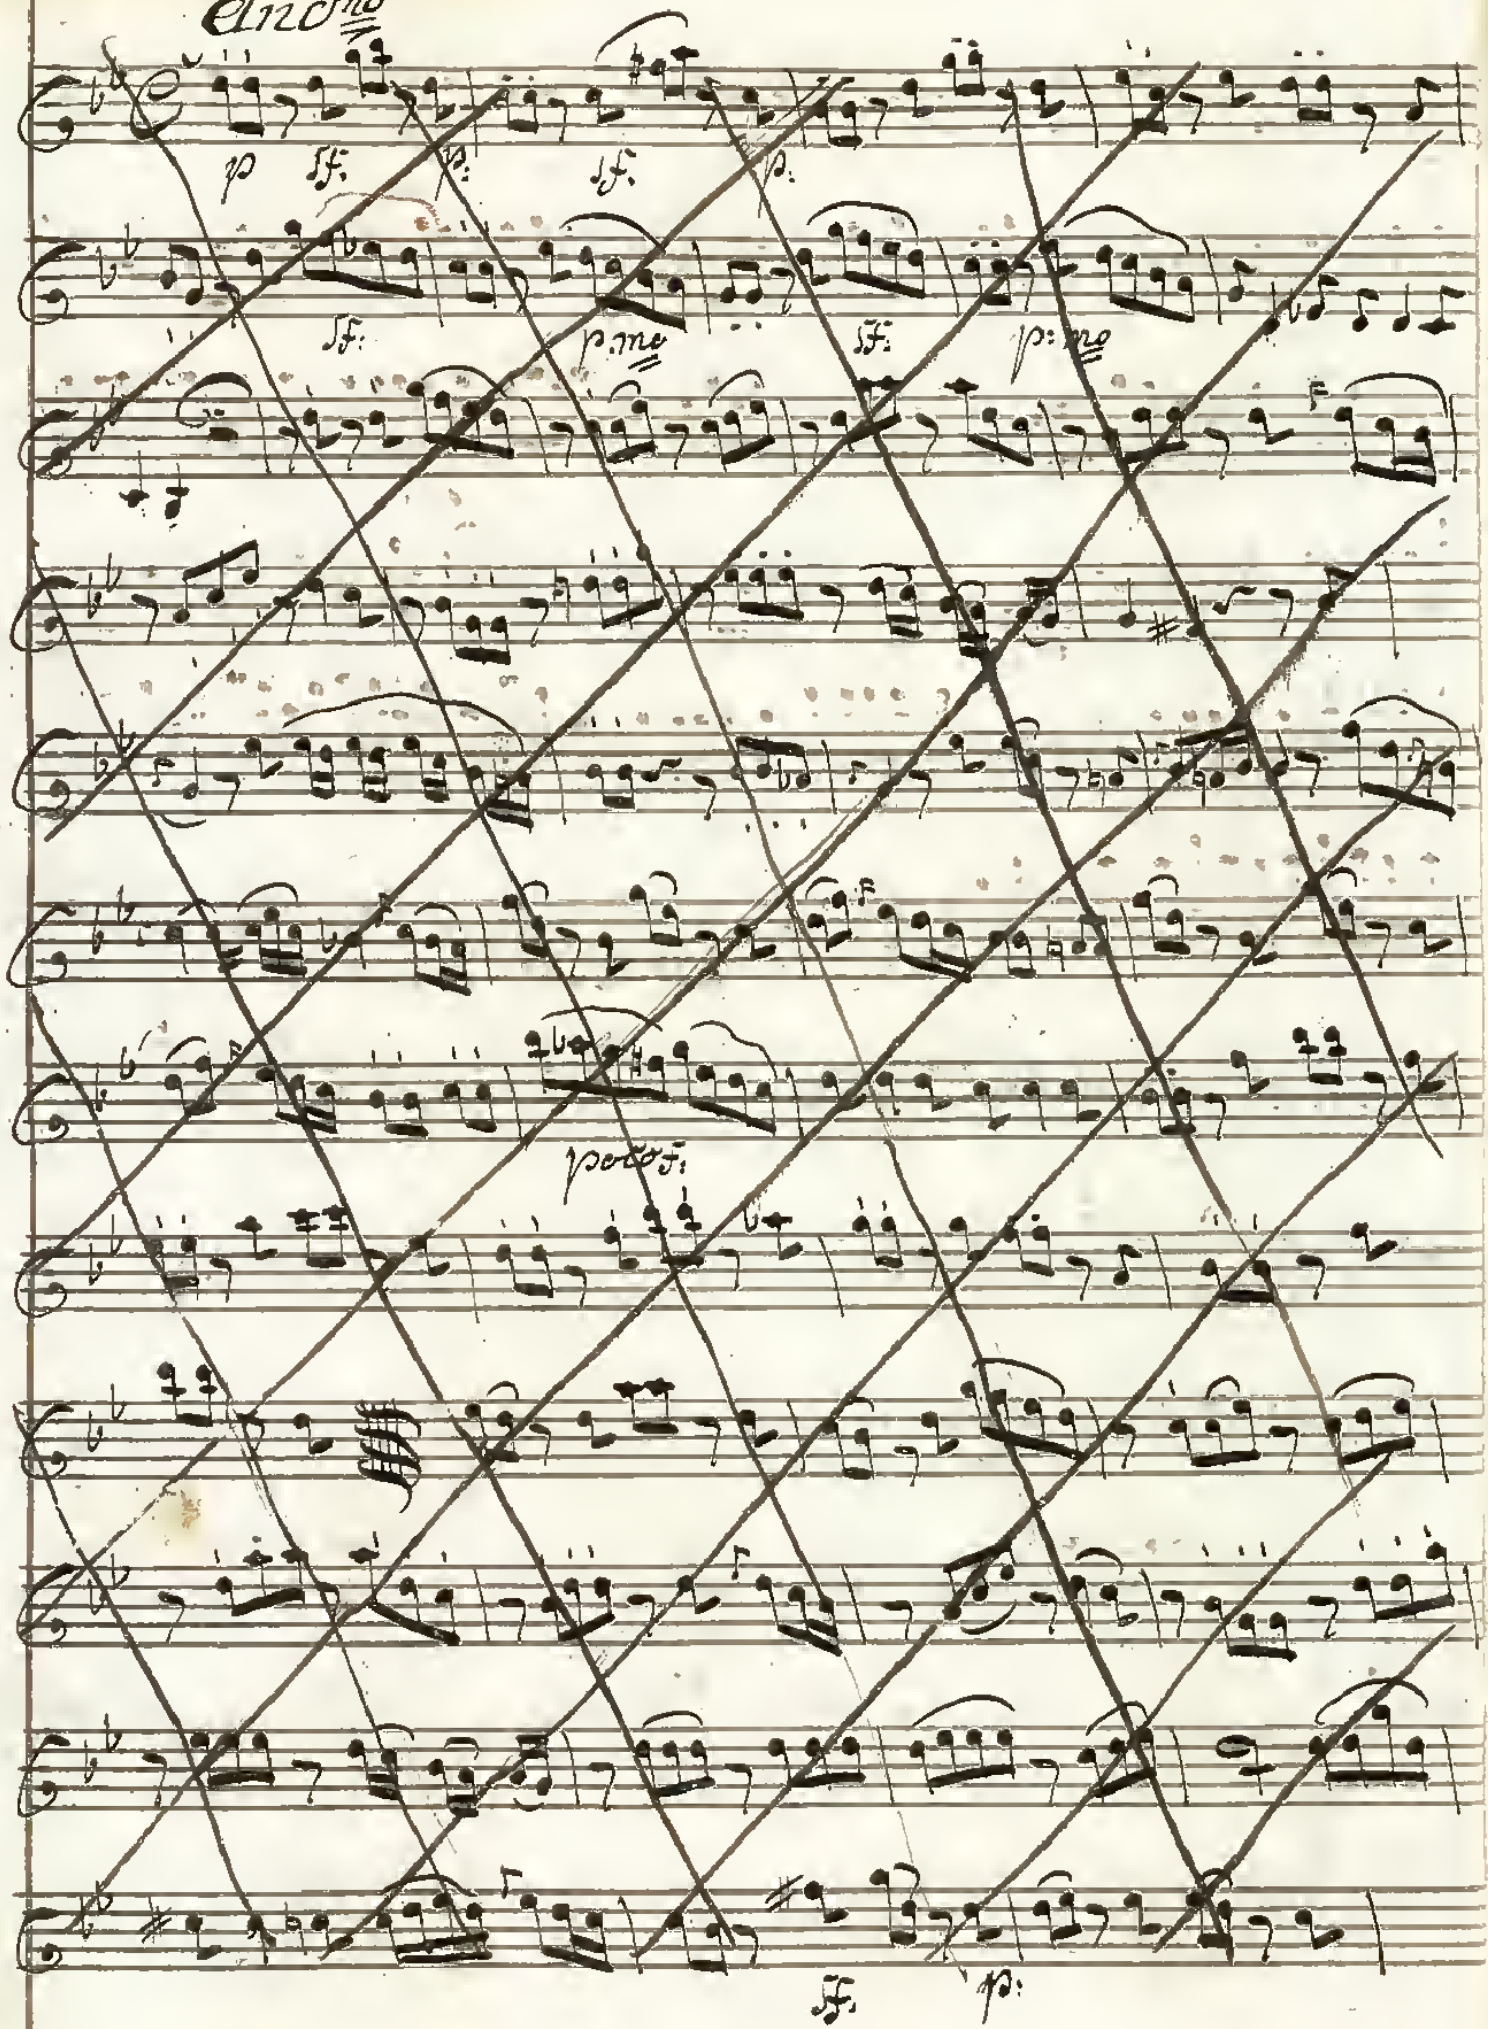 Andno
p sf: p: sf. p:
sf: p:mo sf: p:mo
poco f:
sf. p: